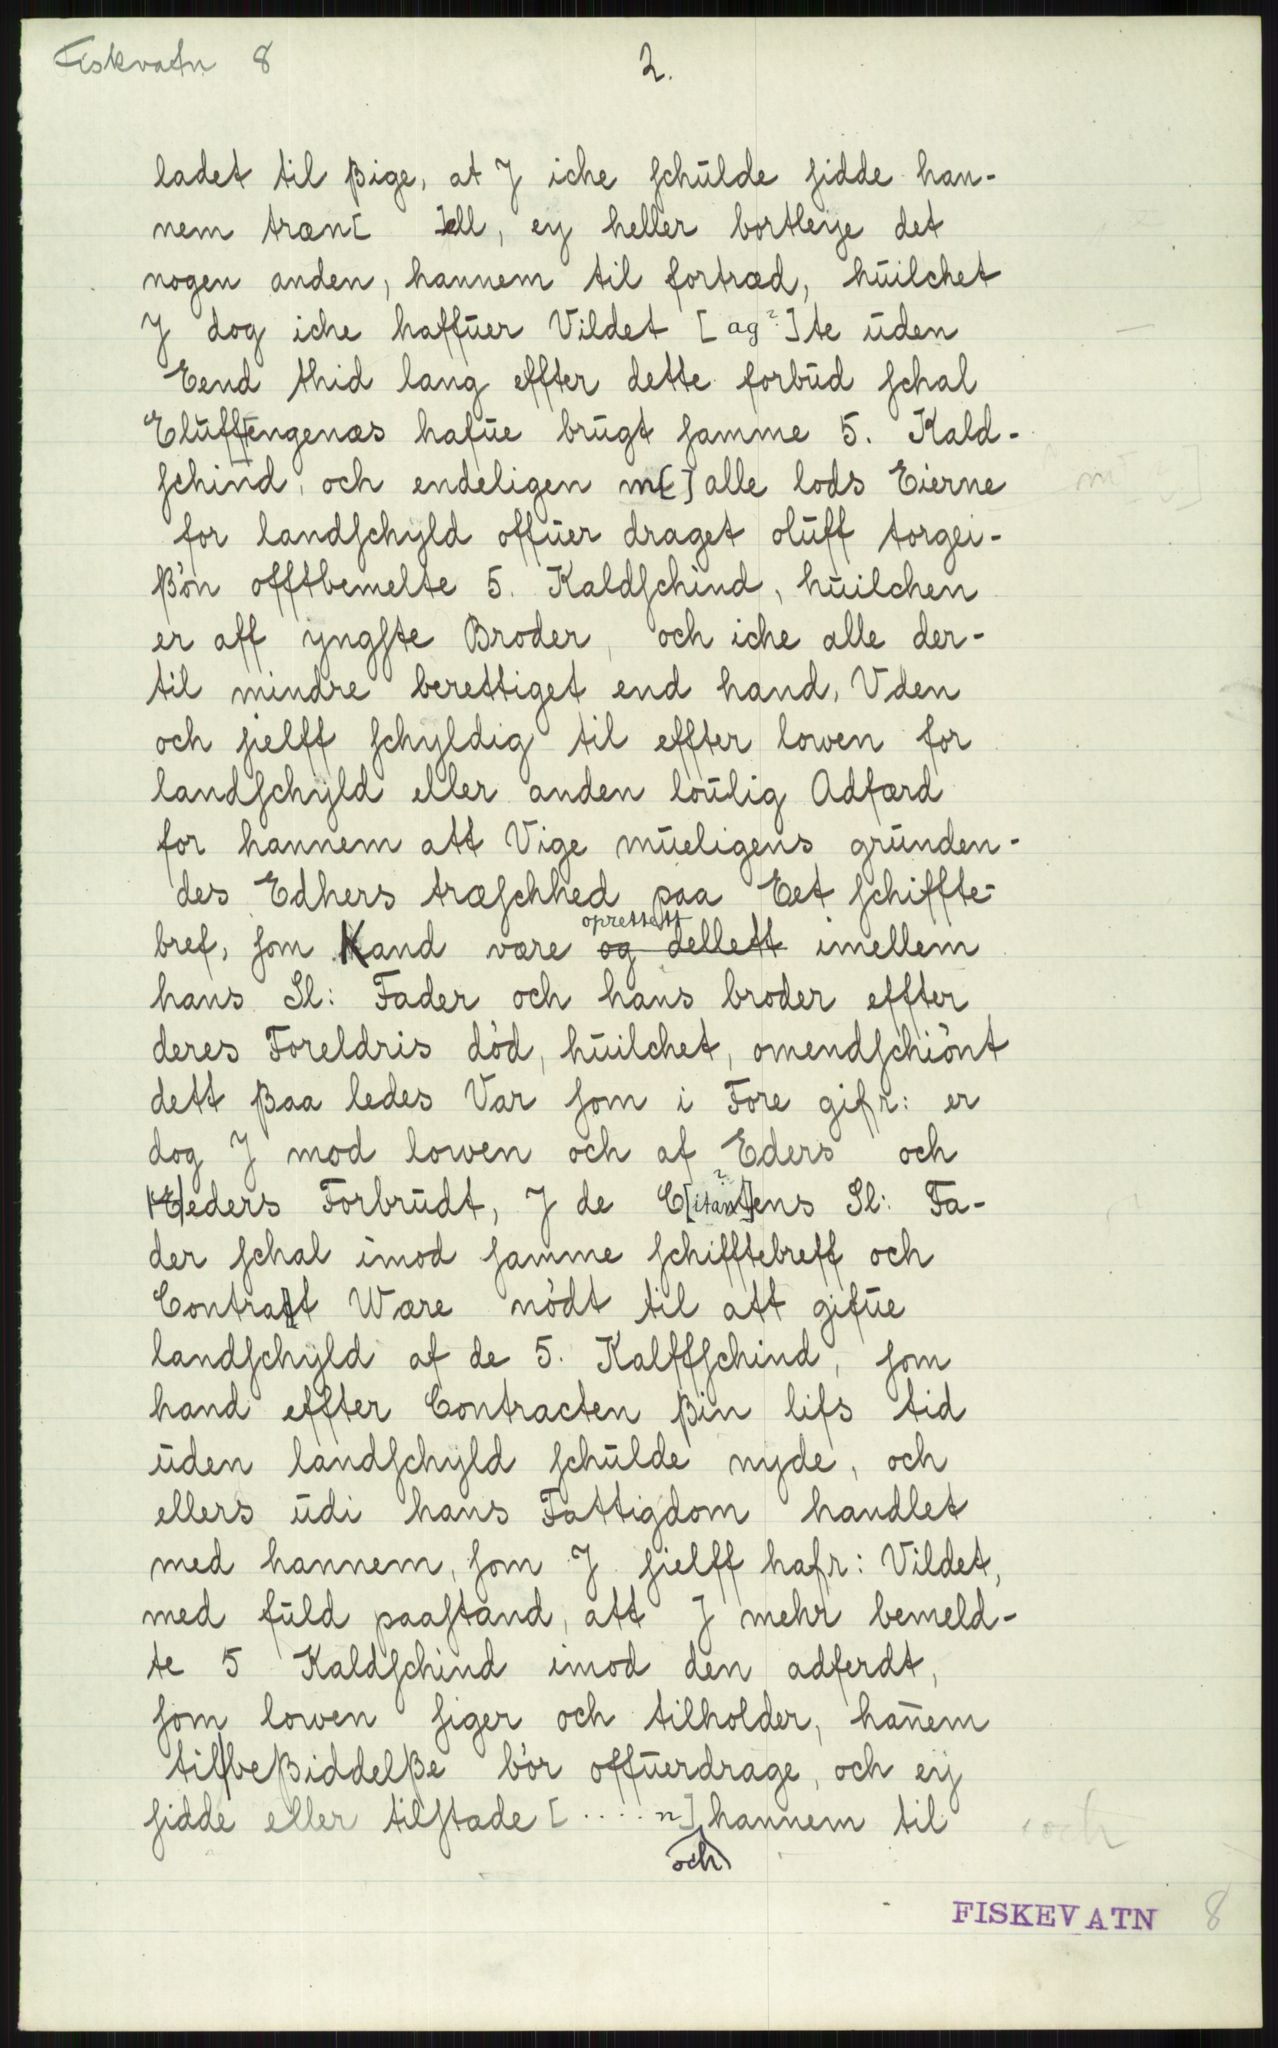 Fiskvatn 8
2.
ladet til ßige, at J iche schulde sidde han-
nem træn[ ]ell, ey heller bortleye det
nogen anden, hannem til fortræd, huilchet
J dog iche haffuer Vildet [ag?]te uden
Eend thid lang effter dette forbud schal
Eluffengenæs hafue brugt samme 5. Kald-
schind, och endeligen m[ ] alle lods Eierne
for landschyld offuer draget oluff torgei-
ßøn offtbemelte 5. Kaldschind, huilchen
er aff yngste Broder, och iche alle der-
til mindre berettiget end hand, Uden
och sielff schyldig til effter lowen for
landschyld eller anden loulig Adfærd
for hannem att Vige mueligens grunden-
des Edhers træschhed paa Eet schiffte-
oprettett
bref, som Kand være og dellett imellem
hans Sl: Fader och hans broder effter
deres Foreldris død, huilchet, omendschiønt
dett ßaa ledes Var som i Fore gifr: er
dog J mod lowen och af Eders och
eders Forbrudt, J de C[itan?]tens Sl: Fa-
der schal imod samme schifftebreff och
Contract Wære nødt til att gifue
landschyld af de 5. Kalffschind, som
hand effter Contracten ßin lifs tid
uden landschyld schulde nyde, och
ellers udi hans Fattigdom handlet
med hannem, som J sielff hafr: Vildet,
med fuld paastand, att J mehr bemeld-
te 5 Kaldschind imod den adferdt,
som lowen siger och tilholder, hañem
til beßiddelße bør offuerdrage, och ey
sidde eller tilstade [ .... n] hannem til
och
och
FISKEVATN 8